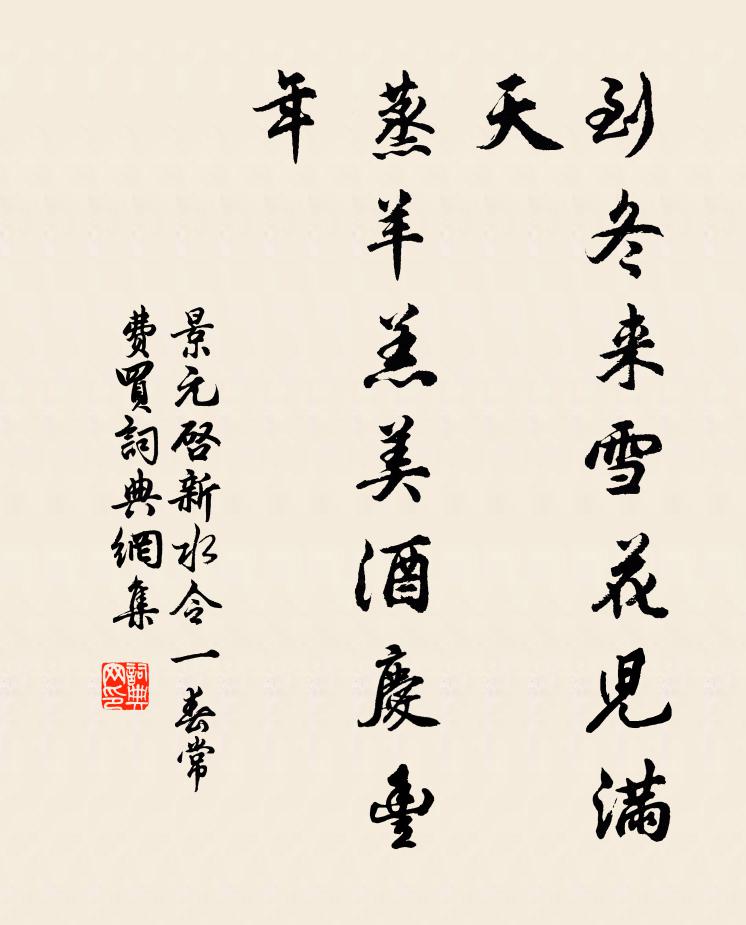 到冬来雪花兒滿
天
蒸羊羔美酒慶豐
年
景元啓新水令一春常
費買詞典網集
詞典
网印